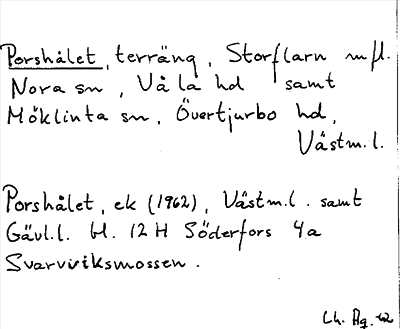 Porshålet, terräng, Storflarn m fl.
Nora sn, Våla hd samt
Möklinta sn, Övertjurbo hd,
Västm.l.
Porshålet, ek (1962), Västm.l. samt
Gävl.l. bl. 12 H Söderfors 4a
Svarviksmossen.
Ch. Ag. 62